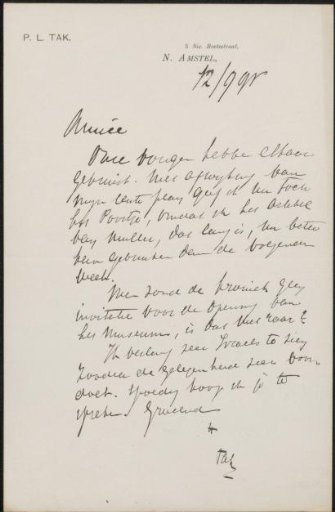 P. L. TAK.
5 Nic. Beetsstraat.
N. AMSTEL,
12/9 95
Amice
Onze vragen hebben elkaar
gekruist. Met afwijking van
mijn eerste plan geef ik nu toch
het Poortje, omdat ik het artikel
van Muller, dat lang is, nu beter
kan gebruiken dan de volgende
week.
Men zond de kroniek geen
invitatie voor de opening van
het Museum, is dat niet raar?
Ik verlang zeer Israels te zien
zoodra de gelegenheid zich voor
doet. Spoedig hoop ik je te
spreken. Groetend
Tak